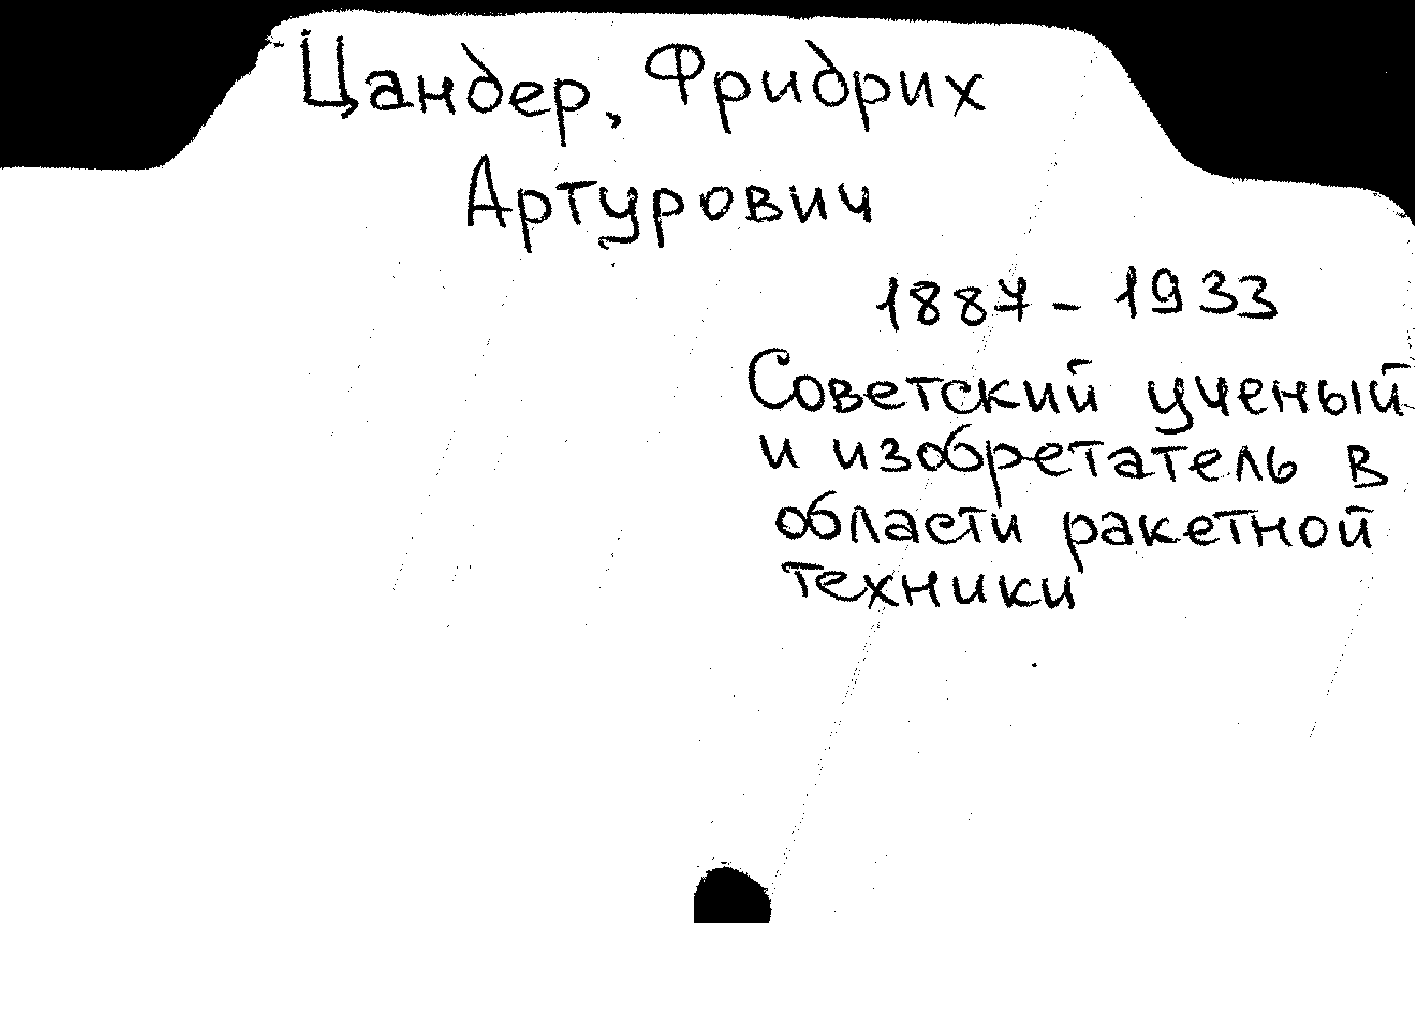 Цандер, Фридрих
Артурович
1887 - 1933
Советский ученый
и изобретатель в
области ракетной
техники